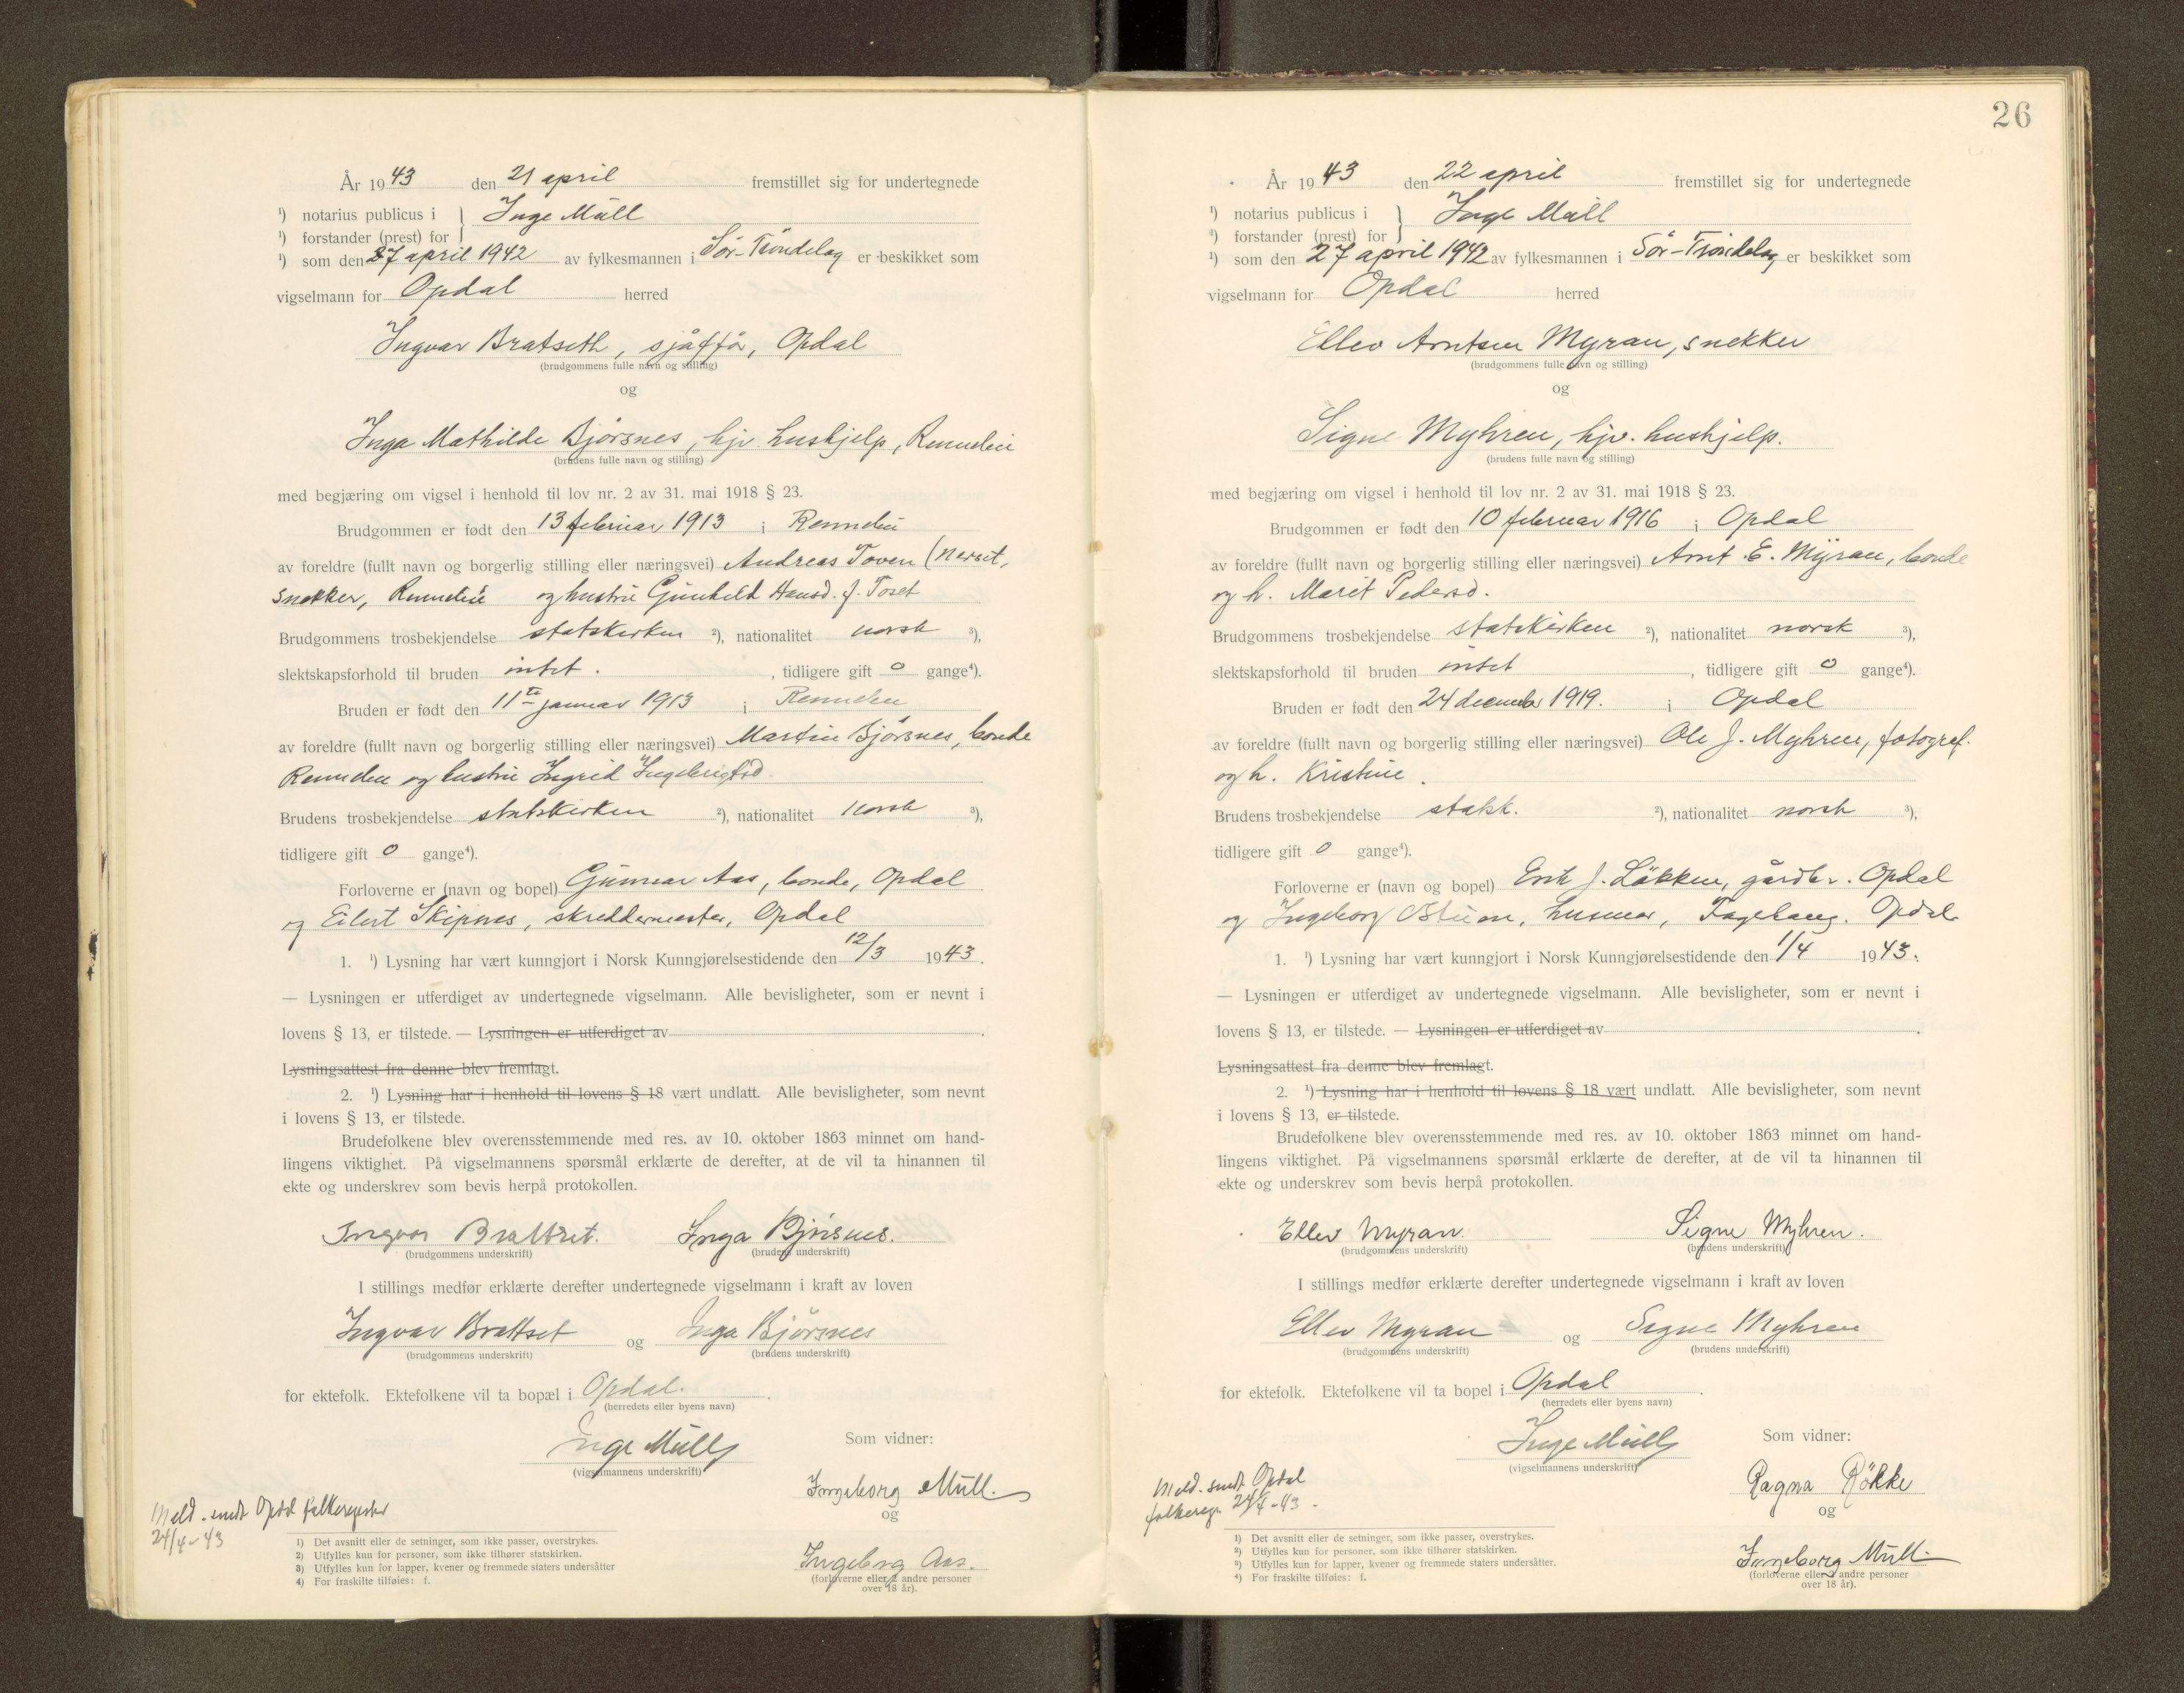 År 1943 den 21 april fremstillet sig for undertegnede
¹) notarius publicus i } Inge Müll
¹) forstander (prest) for
¹) som den 27 april 1942 av fylkesmannen i Sör-Tröndelag er beskikket som
vigselmann for Opdal herred
Ingvar Bratseth, sjåffør, Opdal
(brudgommens fulle navn og stilling)
og
Inga Mathilde Bjørsnes, hjv. hushjelp, Rennebu
(brudens fulle navn og stilling)
med begjæring om vigsel i henhold til lov nr. 2 av 31. mai 1918 § 23.
Brudgommen er født den 13 februar 1913 i Rennebu
av foreldre (fullt navn og borgerlig stilling eller næringsvei) Andreas Toven (Nerset,
snekker, Rennebu og hustru Gunhild Hansd. f. Toset
Brudgommens trosbekjendelse statskirken ²), nationalitet norsk ³),
slektskapsforhold til bruden intet. , tidligere gift 0 gange⁴).
Bruden er født den 11te januar 1913 i Rennebu
av foreldre (fullt navn og borgerlig stilling eller næringsvei) Martin Bjørsnes, bonde
Rennebu og hustru Ingrid Ingebrigtsd.
Brudens trosbekjendelse statskirken ²), nationalitet norsk ³),
tidligere gift 0 gange⁴).
Forloverne er (navn og bopel) Gunnar Aas, bonde, Opdal
og Eilert Skipnes, skreddermester, Opdal
1. ¹) Lysning har vært kunngjort i Norsk Kunngjørelsestidende den 12/3 1943.
— Lysningen er utferdiget av undertegnede vigselmann. Alle bevisligheter, som er nevnt i
lovens § 13, er tilstede. — Lysningen er utferdiget av .
Lysningsattest fra denne blev fremlagt.
2. ¹) Lysning har i henhold til lovens § 18 vært undlatt. Alle bevisligheter, som nevnt
i lovens § 13, er tilstede.
Brudefolkene blev overensstemmende med res. av 10. oktober 1863 minnet om hand-
lingens viktighet. På vigselmannens spørsmål erklærte de derefter, at de vil ta hinannen til
ekte og underskrev som bevis herpå protokollen.
Ingvar Brattset. Inga Bjørsnes.
(brudgommens underskrift) (brudens underskrift)
I stillings medfør erklærte derefter undertegnede vigselmann i kraft av loven
Ingvar Brattset og Inga Bjørsnes
(brudgommens underskrift) (brudens underskrift)
for ektefolk. Ektefolkene vil ta bopæl i Opdal. .
(herredets eller byens navn)
Inge Müll Som vidner:
(vigselmannens underskrift)
Ingeborg Müll.
og
Meld. sendt Opdal folkeregister
24/4-43
Ingeborg Aas.
(forloverne eller 2 andre personer
over 18 år).
1) Det avsnitt eller de setninger, som ikke passer, overstrykes.
2) Utfylles kun for personer, som ikke tilhører statskirken.
3) Utfylles kun for lapper, kvener og fremmede staters undersåtter
4) For fraskilte tilføies: f.
26
År 1943 den 22 april fremstillet sig for undertegnede
¹) notarius publicus i } Inge Müll
¹) forstander (prest) for
¹) som den 27 april 1942 av fylkesmannen i Sör-Tröndelag er beskikket som
vigselmann for Opdal herred
Ellev Arntsen Myran, snekker
(brudgommens fulle navn og stilling)
og
Signe Myhren, hjv. hushjelp.
(brudens fulle navn og stilling)
med begjæring om vigsel i henhold til lov nr. 2 av 31. mai 1918 § 23.
Brudgommen er født den 10 februar 1916 i Opdal
av foreldre (fullt navn og borgerlig stilling eller næringsvei) Arnt E. Myran, bonde
og h. Marit Pedersd.
Brudgommens trosbekjendelse statskirken ²), nationalitet norsk ³),
slektskapsforhold til bruden intet , tidligere gift 0 gange⁴).
Bruden er født den 24 december 1919. i Opdal
av foreldre (fullt navn og borgerlig stilling eller næringsvei) Ole J. Myhren, fotograf.
og h. Kristine.
Brudens trosbekjendelse statsk. ²), nationalitet norsk ³),
tidligere gift 0 gange⁴).
Forloverne er (navn og bopel) Erik J. Løkken, gårdbr. Opdal
og Ingeborg husmor, Fagehaug. Opdal
1. ¹) Lysning har vært kunngjort i Norsk Kunngjørelsestidende den 1/4 1943.
— Lysningen er utferdiget av undertegnede vigselmann. Alle bevisligheter, som er nevnt i
lovens § 13, er tilstede. — Lysningen er utferdiget av .
Lysningsattest fra denne blev fremlagt.
2. ¹) Lysning har i henhold til lovens § 18 vært undlatt. Alle bevisligheter, som nevnt
i lovens § 13, er tilstede.
Brudefolkene blev overensstemmende med res. av 10. oktober 1863 minnet om hand-
lingens viktighet. På vigselmannens spørsmål erklærte de derefter, at de vil ta hinannen til
ekte og underskrev som bevis herpå protokollen.
Ellev Myran. Signe Myhren.
(brudgommens underskrift) (brudens underskrift)
I stillings medfør erklærte derefter undertegnede vigselmann i kraft av loven
Ellev Myran og Signe Myhren
(brudgommens underskrift) (brudens underskrift)
for ektefolk. Ektefolkene vil ta bopel i Opdal .
(herredets eller byens navn)
Inge Müll Som vidner:
(vigselmannens underskrift)
Meld. sendt Opdal
folkereg. 24/4-43.
Ragna Røkke
og
Ingeborg Müll.
(forloverne eller 2 andre personer
over 18 år).
¹) Det avsnitt eller de setninger, som ikke passer, overstrykes.
²) Utfylles kun for personer, som ikke tilhører statskirken.
³) Utfylles kun for lapper, kvener og fremmede staters undersåtter.
⁴) For fraskilte tilføies: f.